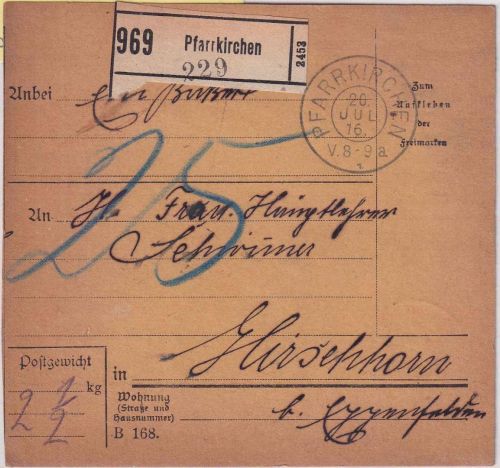 969 Pfarrkirchen 2453
229
Anbei Ein Paket
PFARRKIRCHEN
20.
JUL
16.
V.8-9a
Zum
Aufkleben
der
Freimarken
25
An Frau Hauptlehrer
Hirschhorn
b. Eggenfelden
Postgewicht
2 1/2 kg
in
Wohnung
(Straße und
Hausnummer)
B 168.